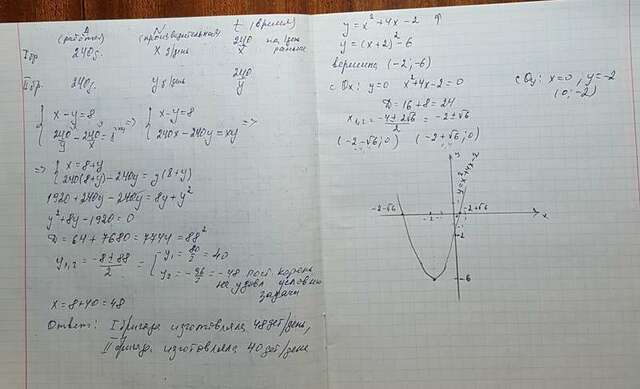 A N t (время)
(работа) (производительная) 240/x на 1 день раньше
I бр 240 g. x g/день
II бр. 240 g. y g/день 240/y
{ x-y=8 240/y - 240/x = 1 => { x-y=8 240x-240y=xy =>
=> { x=8+y 240(8+y)-240y=y(8+y)
1920+240y-240y=8y+y²
y²+8y-1920=0
D=64+7680=7744=88²
y₁,₂ = (-8±88)/2 = [ y₁=80/2=40 y₂=-96/2=-48 пост корень
не удовл условию
задачи
x=8+40=48
Ответ: I бригада изготовляла 48 дет/день,
II бригад. изготовляла 40 дет/день
y=x²+4x-2 ↑
y=(x+2)²-6
вершина (-2;-6)
c Ox: y=0 x²+4x-2=0
D=16+8=24
x₁,₂=(-4±2√6)/2=-2±√6
(-2-√6;0) (-2+√6;0)
c Oy: x=0, y=-2
(0;-2)
y
y=x²+4x-2
-2-√6
-2+√6
x
-2
-6